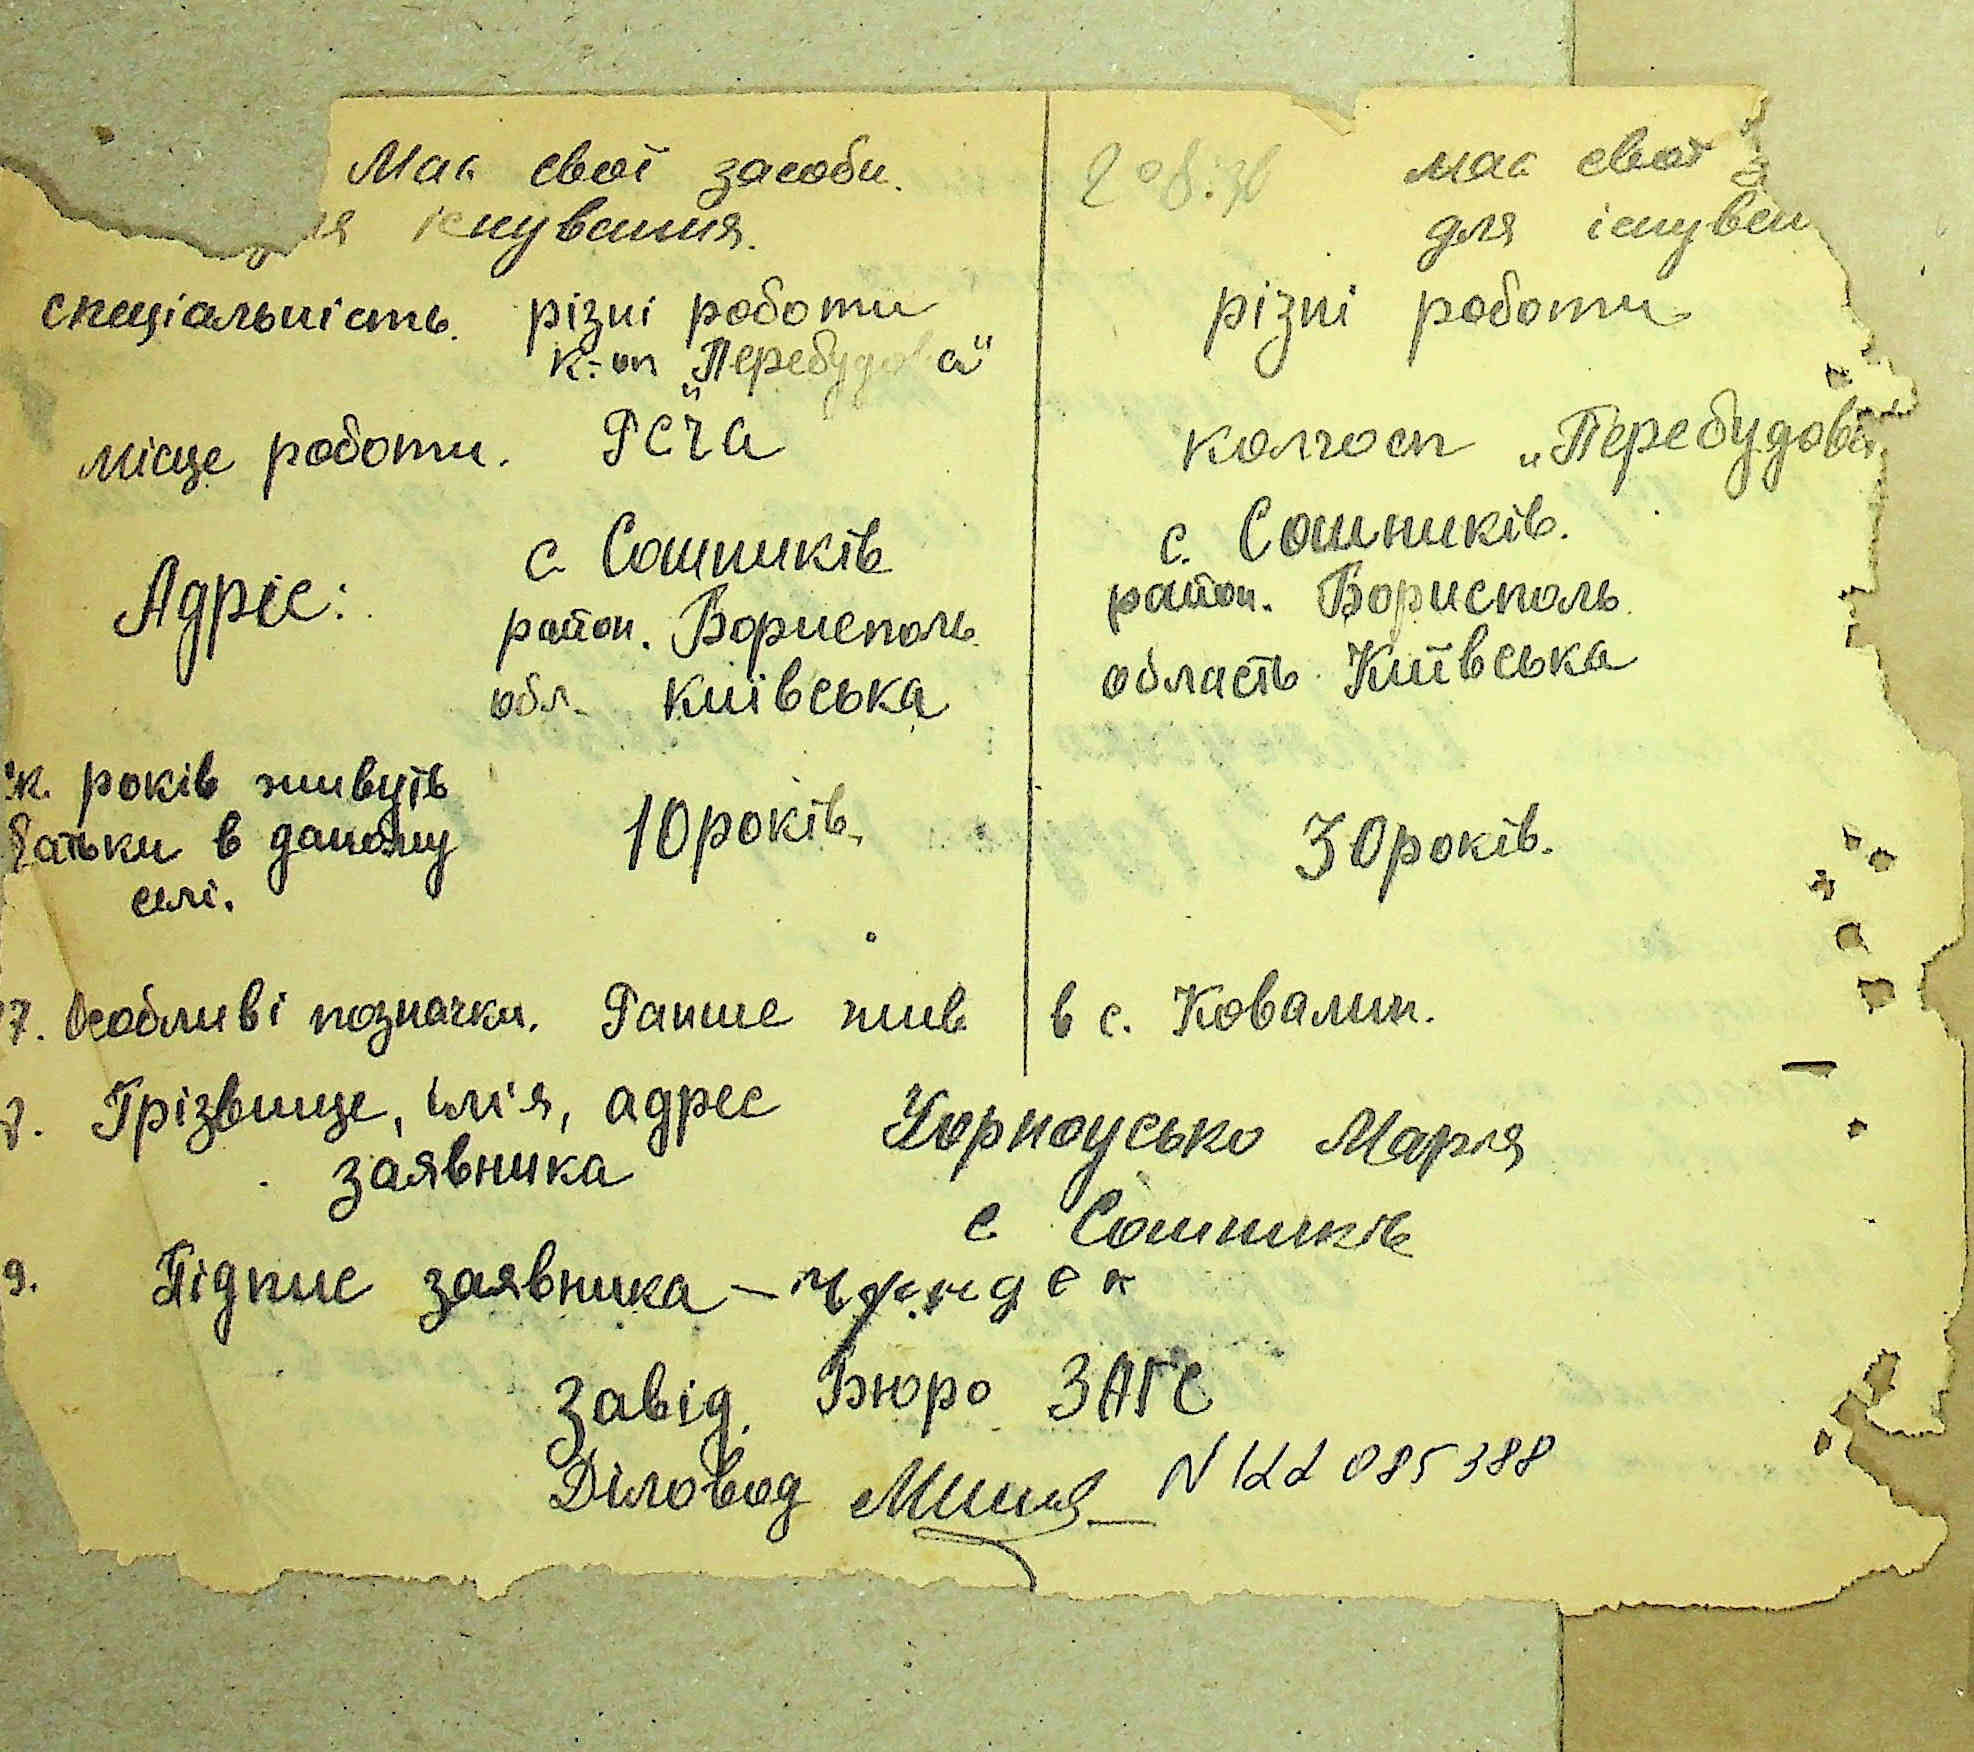 Має свої засоби.
існування.
має свої
для існуван
спеціальність. різні роботи
різні роботи
к-оп „Перебудова"
місце роботи.
колгосп „Перебудова
Адріс:
с. Сошників
район. Бориспсоль
обл. Київська
с. Сошників.
район. Борисполь
область Київська
ск. років живуть
батьки в даному
селі.
10 років.
30 років.
7. Особливі позначки. Раніше жив в с. Ковалин.
8. Прізвище, ім'я, адрес
заявника
Чорноусько Марія
с. Сошників
9. Підпис заявника –
Завід. Бюро ЗАГС
Діловод
085388